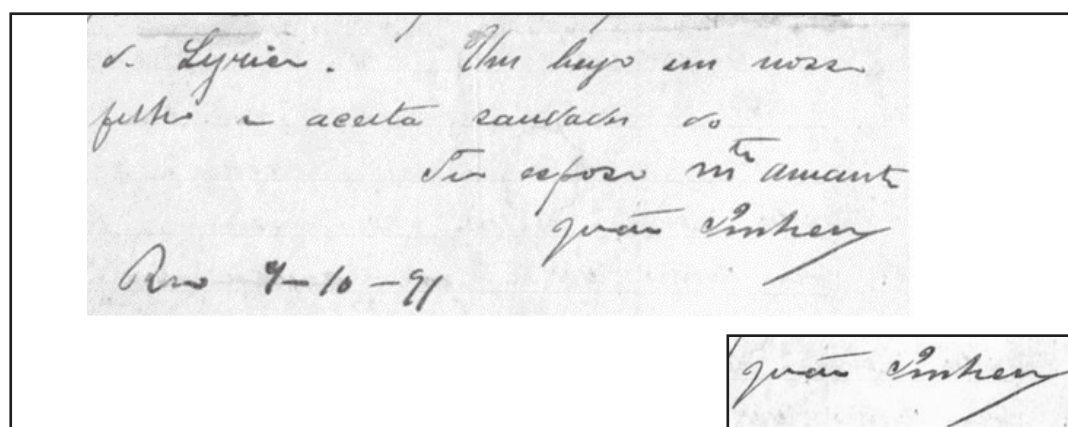 d. Lyrica. Um bejo em nosso
filho e aceita saudades do
Teu esposo m.to amante
João Pinheiro
Rio 9-10-91
João Pinheiro